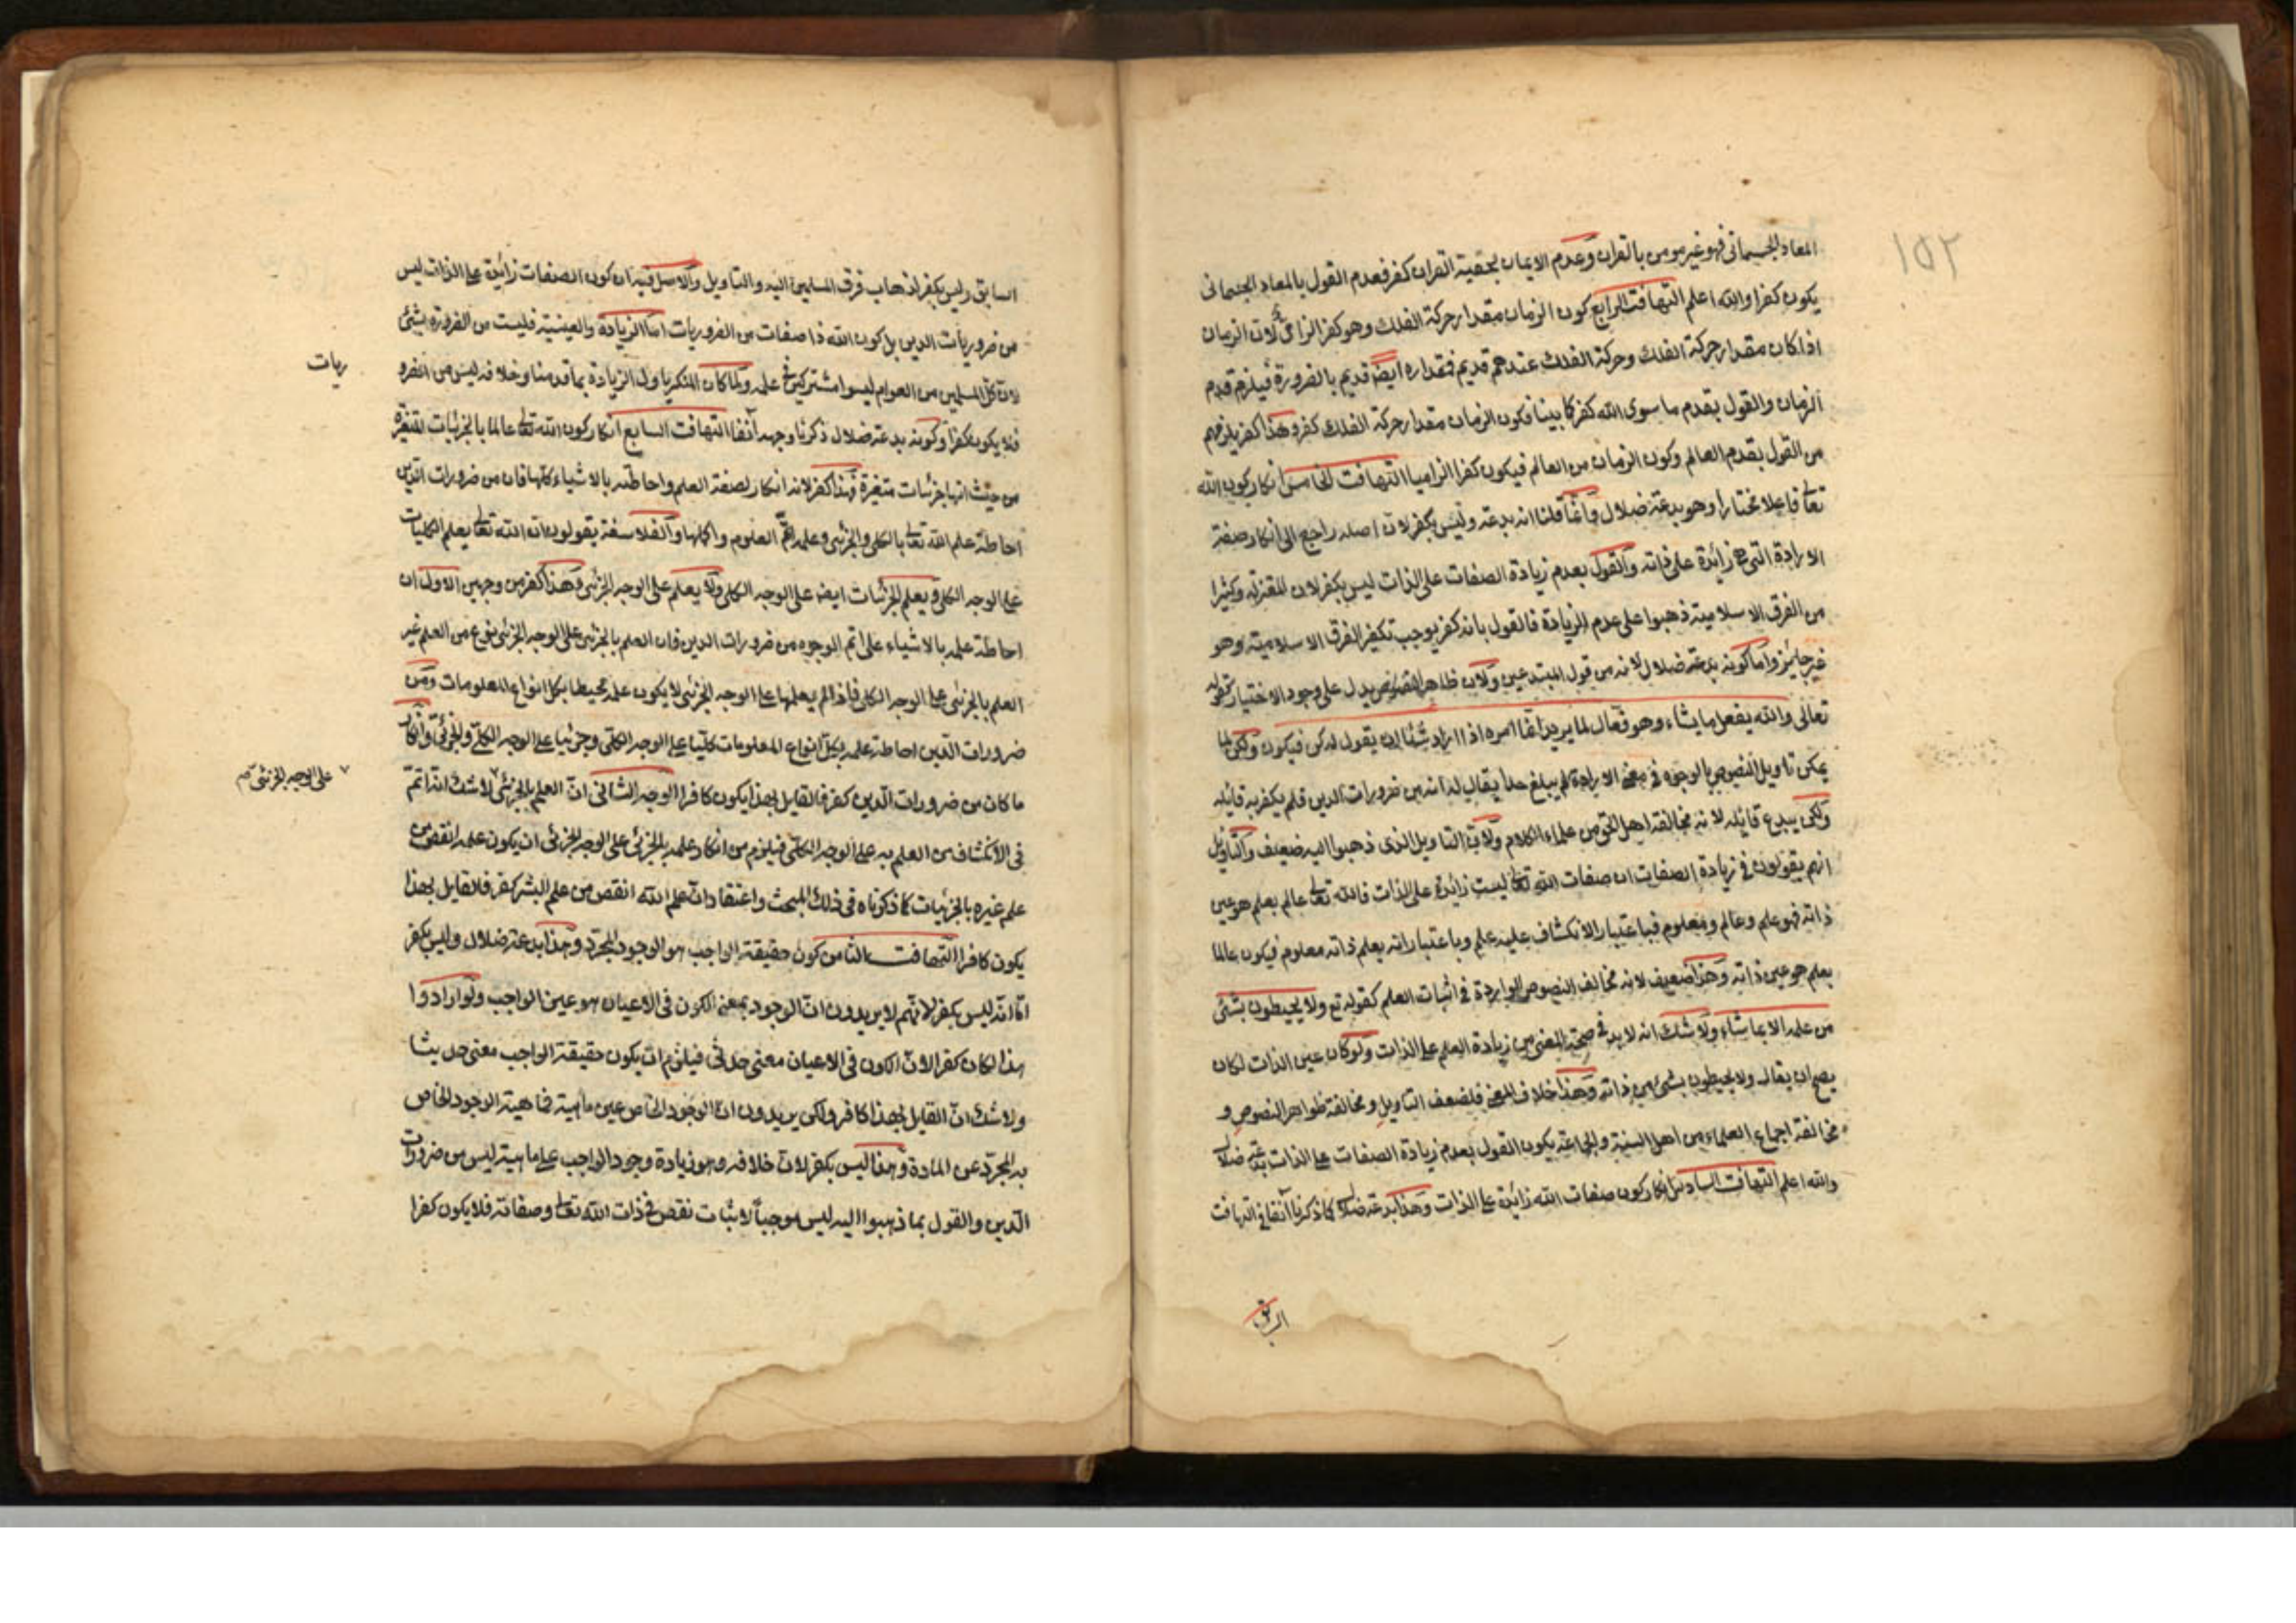 ١٥٢
المعاد الجسمانى فهو غير مومن بالقران وعدم الايمان بحقية القران كفر فعدم القول بالمعاد الجسمانى
يكون كفرا والله اعلم التهافت الرابع كون الزمان مقدار حركة الفلك وهو كفر الزامى لان الزمان
اذا كان مقدار حركة الفلك وحركة الفلك عندهم قديم فمقداره ايضا قديم بالضرورة فيلزم قدم
الزمان والقول بقدم ما سوى الله كفر كما بينا فكون الزمان مقدار حركة الفلك كفر وهذا كفر يلزمهم
من القول بقدم العالم وكون الزمان من العالم فيكون كفرا الزاميا التهافت الخامس انكار كون الله
تعالى فاعلا مختارا وهو بدعة ضلال وانما قلنا انه بدعة وليس بكفر لان اصله راجع الى انكار صفة
الارادة التى هى زائدة على ذاته والقول بعدم زيادة الصفات على الذات ليس بكفر لان المعتزلة وكثيرا
من الفرق الاسلامية ذهبوا على عدم الزيادة فالقول بانه كفر يوجب تكفير الفرق الاسلامية وهو
غير جائز واما كونه بدعة ضلال لانه من قول المبتدعين ولان ظاهر النصوص يدل على وجود الاختيار كقوله
تعالى والله يفعل ما يشاء وهو فعال لما يريد انما امره اذا اراد شيئا ان يقول له كن فيكون ولكن لما
يمكن تاويل النصوص بالوجوه فى معنى الارادة لم يبلغ حدا يقال له انه من ضرورات الدين فلم يكفر به قائله
ولكن يبدع قائله لانه مخالفة اهل الحق من علماء الكلام ولان التاويل الذى ذهبوا اليه ضعيف والتاويل
انهم يقولون فى زيادة الصفات ان صفات الله تعالى ليست زائدة على الذات فالله تعالى عالم بعلم هو عين
ذاته فهو علم وعالم ومعلوم فباعتبار الانكشاف عليه علم وباعتبار انه يعلم ذاته معلوم فيكون عالما
بعلم هو عين ذاته وهذا ضعيف لانه مخالف النصوص الواردة فى اثبات العلم كقوله تع ولا يحيطون بشئ
من علمه الا بما شاء ولا شك انه لا بد فى صحة المعنى من زيادة العلم على الذات ولو كان عين الذات لكان
يصح ان يقال ولا يحيطون بشئ من ذاته وهذا خلاف المعنى فلضعف التاويل ومخالفة ظواهر النصوص و
مخالفة اجماع العلماء من اهل السنة والجماعة يكون القول بعدم زيادة الصفات على الذات بدعة ضلال
والله اعلم التهافت السادس انكار كون صفات الله زائدة على الذات وهذا بدعة ضلال كما ذكرنا آنفا فى التهافت
السابق وليس بكفر لذهاب فرق المسلمين اليه والتاويل والاصل فيه ان كون الصفات زائدة على الذات ليس
من ضروريات الدين بل كون الله ذا صفات من الضروريات اما الزيادة والعينية فليست من الضرورة بشئ
لان كل المسلمين من العوام ليسوا مشتركين فى علمه ولما كان المنكر ياول الزيادة بما قدمنا وخلافه ليس من الضرو
ريات
فلا يكون كفرا وكونه بدعة ضلال ذكرنا وجهه آنفا التهافت السابع انكار كون الله تعالى عالما بالجزئيات المتغيرة
من حيث انها جزئيات متغيرة فهذا كفر لانه انكار لصفة العلم واحاطته بالاشياء كلها فان من ضرورات الدين
احاطة علم الله تعالى بالكلى والجزئى وعلمه اتم العلوم واكملها والفلاسفة يقولون ان الله تعالى يعلم الكليات
على الوجه الكلى ويعلم الجزئيات ايضا على الوجه الكلى ولا يعلم على الوجه الجزئى وهذا كفر من وجهين الاول ان
احاطة علمه بالاشياء على اتم الوجوه من ضرورات الدين فان العلم بالجزئى على الوجه الجزئى نوع من العلم غير
العلم بالجزئى على الوجه الكلى فاذا لم يعلمها على الوجه الجزئى لا يكون علمه محيطا بكل انواع المعلومات ومن
ضرورات الدين احاطة علمه بكل انواع المعلومات كليا على الوجه الكلى وجزئيا على الوجه الكلى والجزئى وانكار
ما كان من ضرورات الدين كفر فالقايل بهذا يكون كافرا الوجه الثانى ان العلم بالجزئى لا شك انه اتم
على الوجه الجزئى صم
فى الانكشاف من العلم به على الوجه الكلى فيلزم من انكار علمه بالجزئى على الوجه الجزئى ان يكون علمه انقص من
علم غيره بالجزئيات كما ذكرناه فى ذلك المبحث واعتقاد ان علم الله انقص من علم البشر كفر فالقايل بهذا
يكون كافرا التهافت الثامن كون حقيقة الواجب هو الوجود المجرد وهذا بدعة ضلال وليس بكفر
اما انه ليس بكفر لانهم لا يريدون ان الوجود بمعنى الكون فى الاعيان هو عين الواجب ولو ارادوا
هذا لكان كفرا لان الكون فى الاعيان معنى حدثى فيلزم ان يكون حقيقة الواجب معنى حديثا
ولا شك ان القايل بهذا كافر ولكن يريدون ان الوجود الخاص عين ماهية فماهيته الوجود الخاص
به المجرد عن المادة وهذا ليس بكفر لان خلافه وهو زيادة وجود الواجب على ماهيته ليس من ضرورات
الدين والقول بما ذهبوا اليه ليس موجبا لاثبات نقص فى ذات الله تعالى وصفاته فلا يكون كفرا